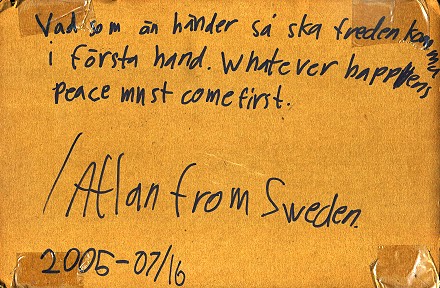 Vad som än händer så ska freden komma
i första hand. Whatever happens
Peace must come first.
/Aflan from Sweden.
2005-07/16